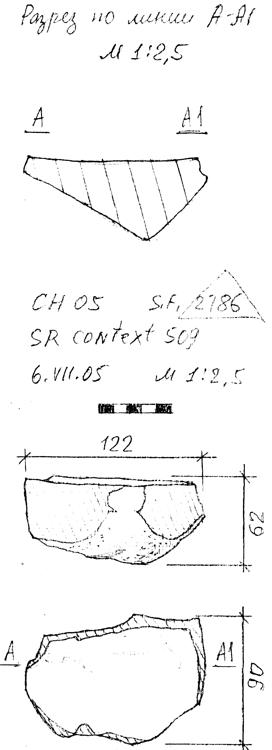 Разрез по линии А-А1
М 1:2,5
А А1
CH 05 S.F. 2786
SR context 509
6.VII.05 М 1:2,5
122
62
А А1
90